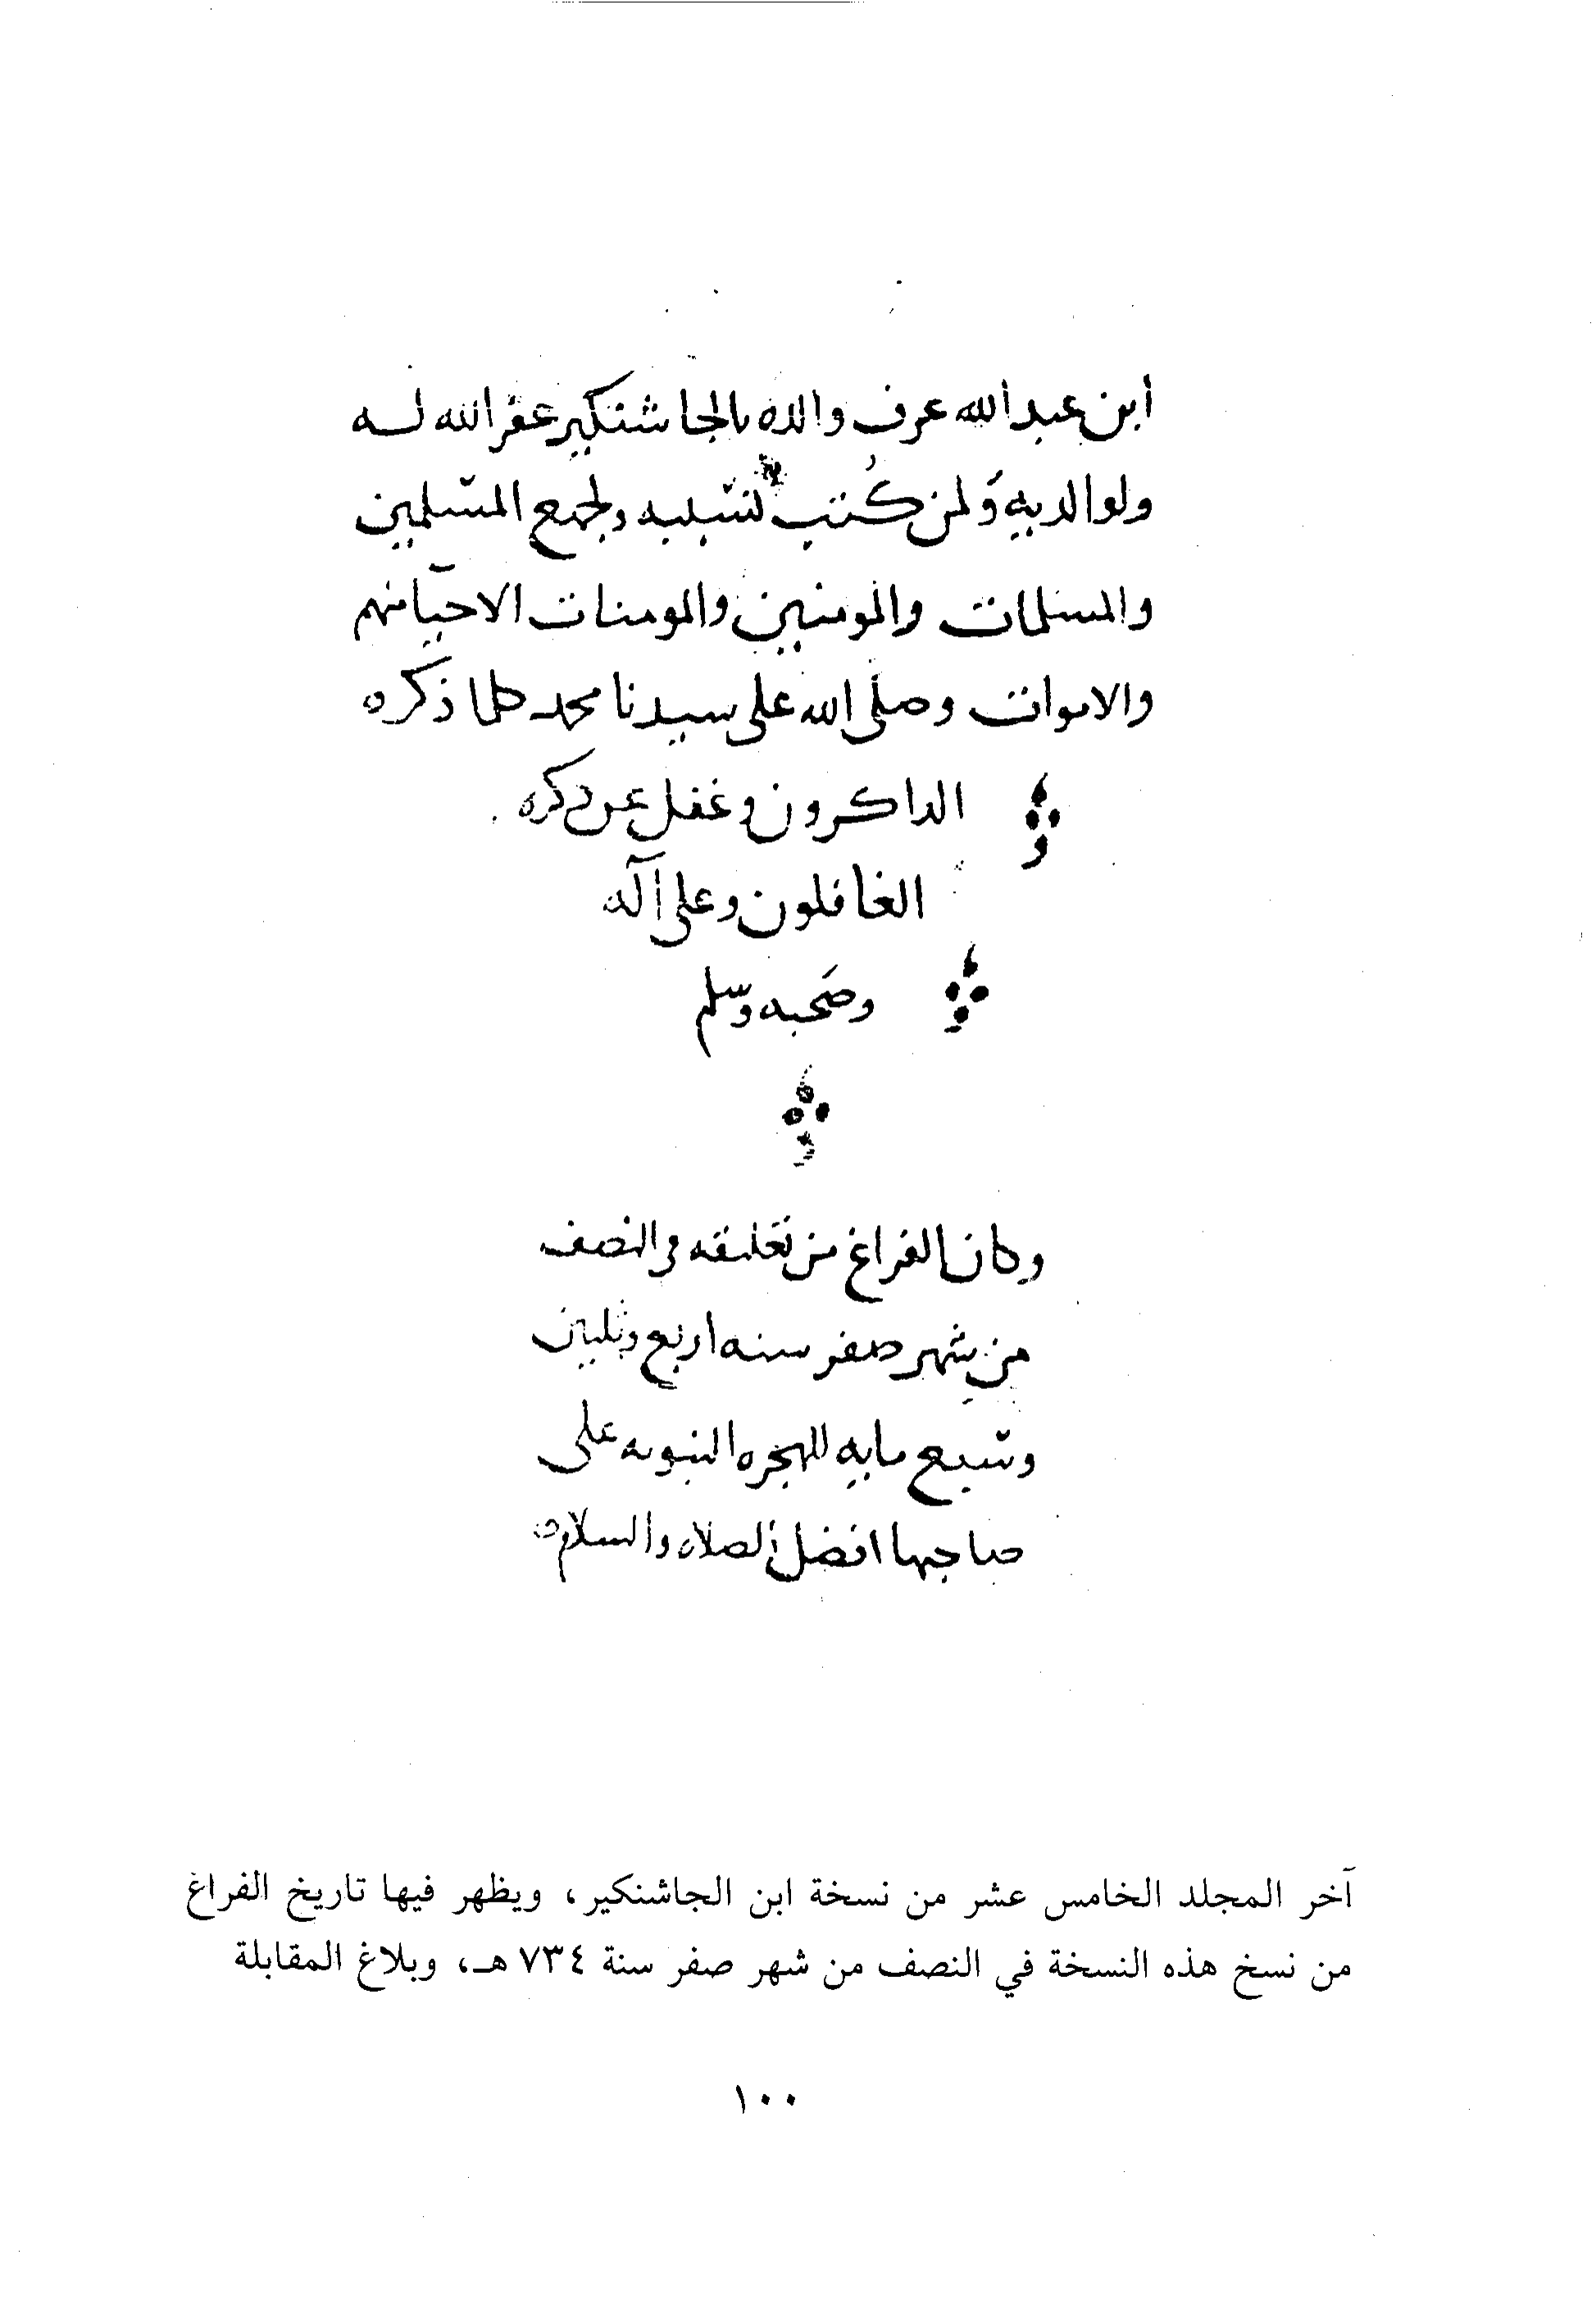 ابن عبد الله عرف والده بالجاشنكير غفر الله له
ولوالديه ولمن كُتب بسببه ولجميع المسلمين
والمسلمات والمومنين والمومنات الاحيآ منهم
والاموات وصلى الله على سيدنا محمد كلما ذكره
الذاكرون وغفل عن ذكره
الغافلون وعلى آله
وصحبه وسلم
وكان الفراغ من تعليقه في النصف
من شهر صفر سنه اربع وثلثين
وسبع مايه للهجره النبويه على
صاحبها افضل الصلاه والسلام
آخر المجلد الخامس عشر من نسخة ابن الجاشنكير، ويظهر فيها تاريخ الفراغ
من نسخ هذه النسخة في النصف من شهر صفر سنة ٧٣٤ هـ، وبلاغ المقابلة
١٠٠